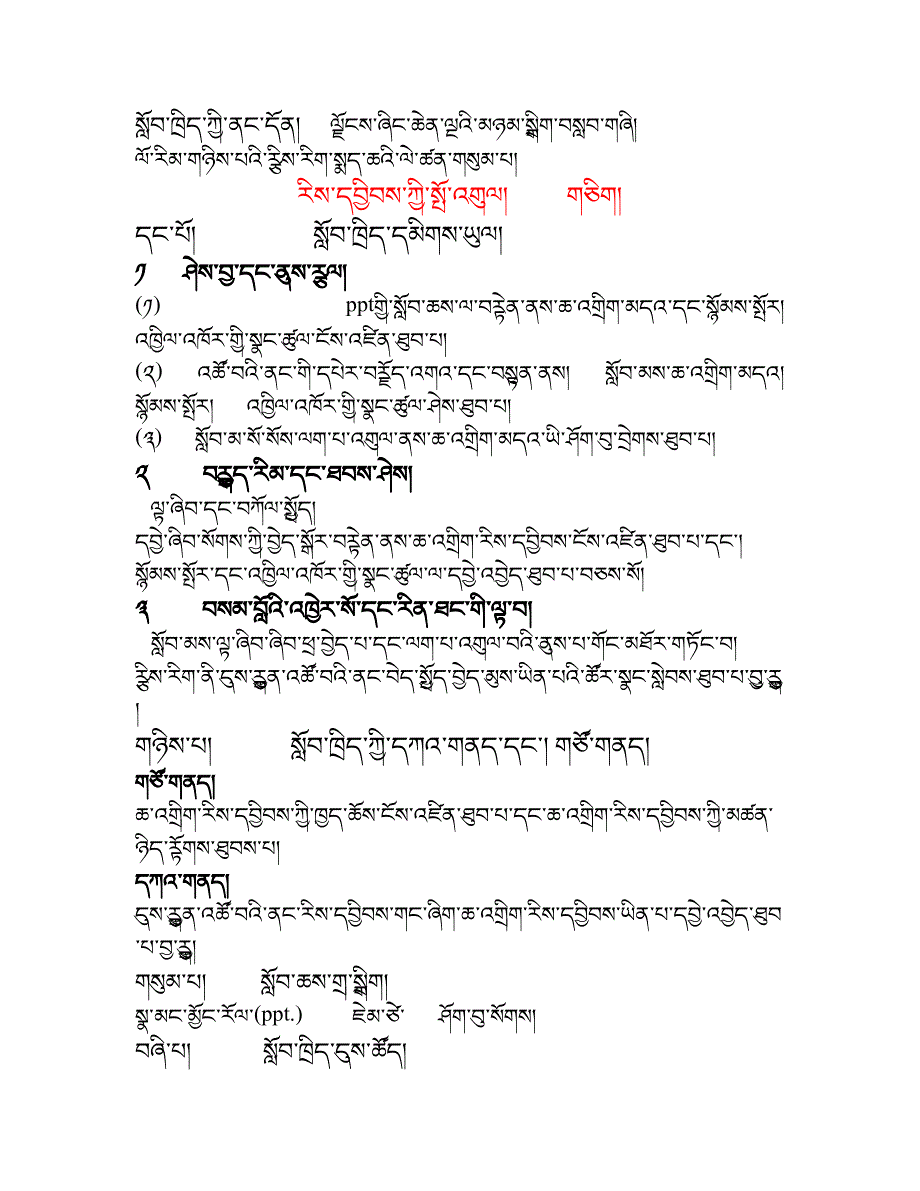 སློབ་ཁྲིད་ཀྱི་ནང་དོན། ལྗོངས་ཞིང་ཆེན་ལྔའི་མཉམ་སྒྲིག་བསླབ་གཞི།
ལོ་རིམ་གཉིས་པའི་རྩིས་རིག་སྨད་ཆའི་ལེ་ཚན་གསུམ་པ།
རིས་དབྱིབས་ཀྱི་སྤོ་འགུལ། གཅིག།
དང་པོ། སློབ་ཁྲིད་དམིགས་ཡུལ།
༡ ཤེས་བྱ་དང་ནུས་རྩལ།
(༡) pptགྱི་སློབ་ཆས་ལ་བརྟེན་ནས་ཆ་འགྲིག་མདའ་དང་སྙོམས་སྤོར།
འཁྱིལ་འཁོར་གྱི་སྣང་ཚུལ་ངོས་འཛིན་ཐུབ་པ།
(༢) འཚོ་བའི་ནང་གི་དཔེར་བརྗོད་འགའ་དང་བསྟུན་ནས། སློབ་མས་ཆ་འགྲིག་མདའ།
སྙོམས་སྤོར། འཁྱིལ་འཁོར་གྱི་སྣང་ཚུལ་ཤེས་ཐུབ་པ།
(༣) སློབ་མ་སོ་སོས་ལག་པ་འགུལ་ནས་ཆ་འགྲིག་མདའ་ཡི་ཤོག་བུ་བྲེགས་ཐུབ་པ།
༢ བརྒྱུད་རིམ་དང་ཐབས་ཤེས།
ལྟ་ཞིབ་དང་བཀོལ་སྤྱོད།
དབྱེ་ཞིབ་སོགས་ཀྱི་བྱེད་སྒོར་བརྟེན་ནས་ཆ་འགྲིག་རིས་དབྱིབས་ངོས་འཛིན་ཐུབ་པ་དང་།
སྙོམས་སྤོར་དང་འཁྱིལ་འཁོར་གྱི་སྣང་ཚུལ་ལ་དབྱེ་འབྱེད་ཐུབ་པ་བཅས་སོ།
༣ བསམ་བློའི་འཁྱེར་སོ་དང་རིན་ཐང་གི་ལྟ་བ།
སློབ་མས་ལྟ་ཞིབ་ཞིབ་ཕྲ་བྱེད་པ་དང་ལག་པ་འགུལ་བའི་ནུས་པ་གོང་མཐོར་གཏོང་བ།
རྩིས་རིག་ནི་དུས་རྒྱུན་འཚོ་བའི་ནང་བེད་སྤྱོད་བྱེད་མུས་ཡིན་པའི་ཚོར་སྣང་སླེབས་ཐུབ་པ་བྱ་རྒྱུ
།
གཉིས་པ། སློབ་ཁྲིད་ཀྱི་དཀའ་གནད་དང་། གཙོ་གནད།
གཙོ་གནད།
ཆ་འགྲིག་རིས་དབྱིབས་ཀྱི་ཁྱད་ཆོས་ངོས་འཛིན་ཐུབ་པ་དང་ཆ་འགྲིག་རིས་དབྱིབས་ཀྱི་མཚན་
ཉིད་རྟོགས་ཐུབས་པ།
དཀའ་གནད།
དུས་རྒྱུན་འཚོ་བའི་ནང་རིས་དབྱིབས་གང་ཞིག་ཆ་འགྲིག་རིས་དབྱིབས་ཡིན་པ་དབྱེ་འབྱེད་ཐུབ
་པ་བྱ་རྒྱུ།
གསུམ་པ། སློབ་ཆས་གྲ་སྒྲིག།
སྣ་མང་མྱོང་རོལ་(ppt.) ཇེམ་ཙེ་ ཤོག་བུ་སོགས།
བཞི་པ། སློབ་ཁྲིད་དུས་ཚོད།